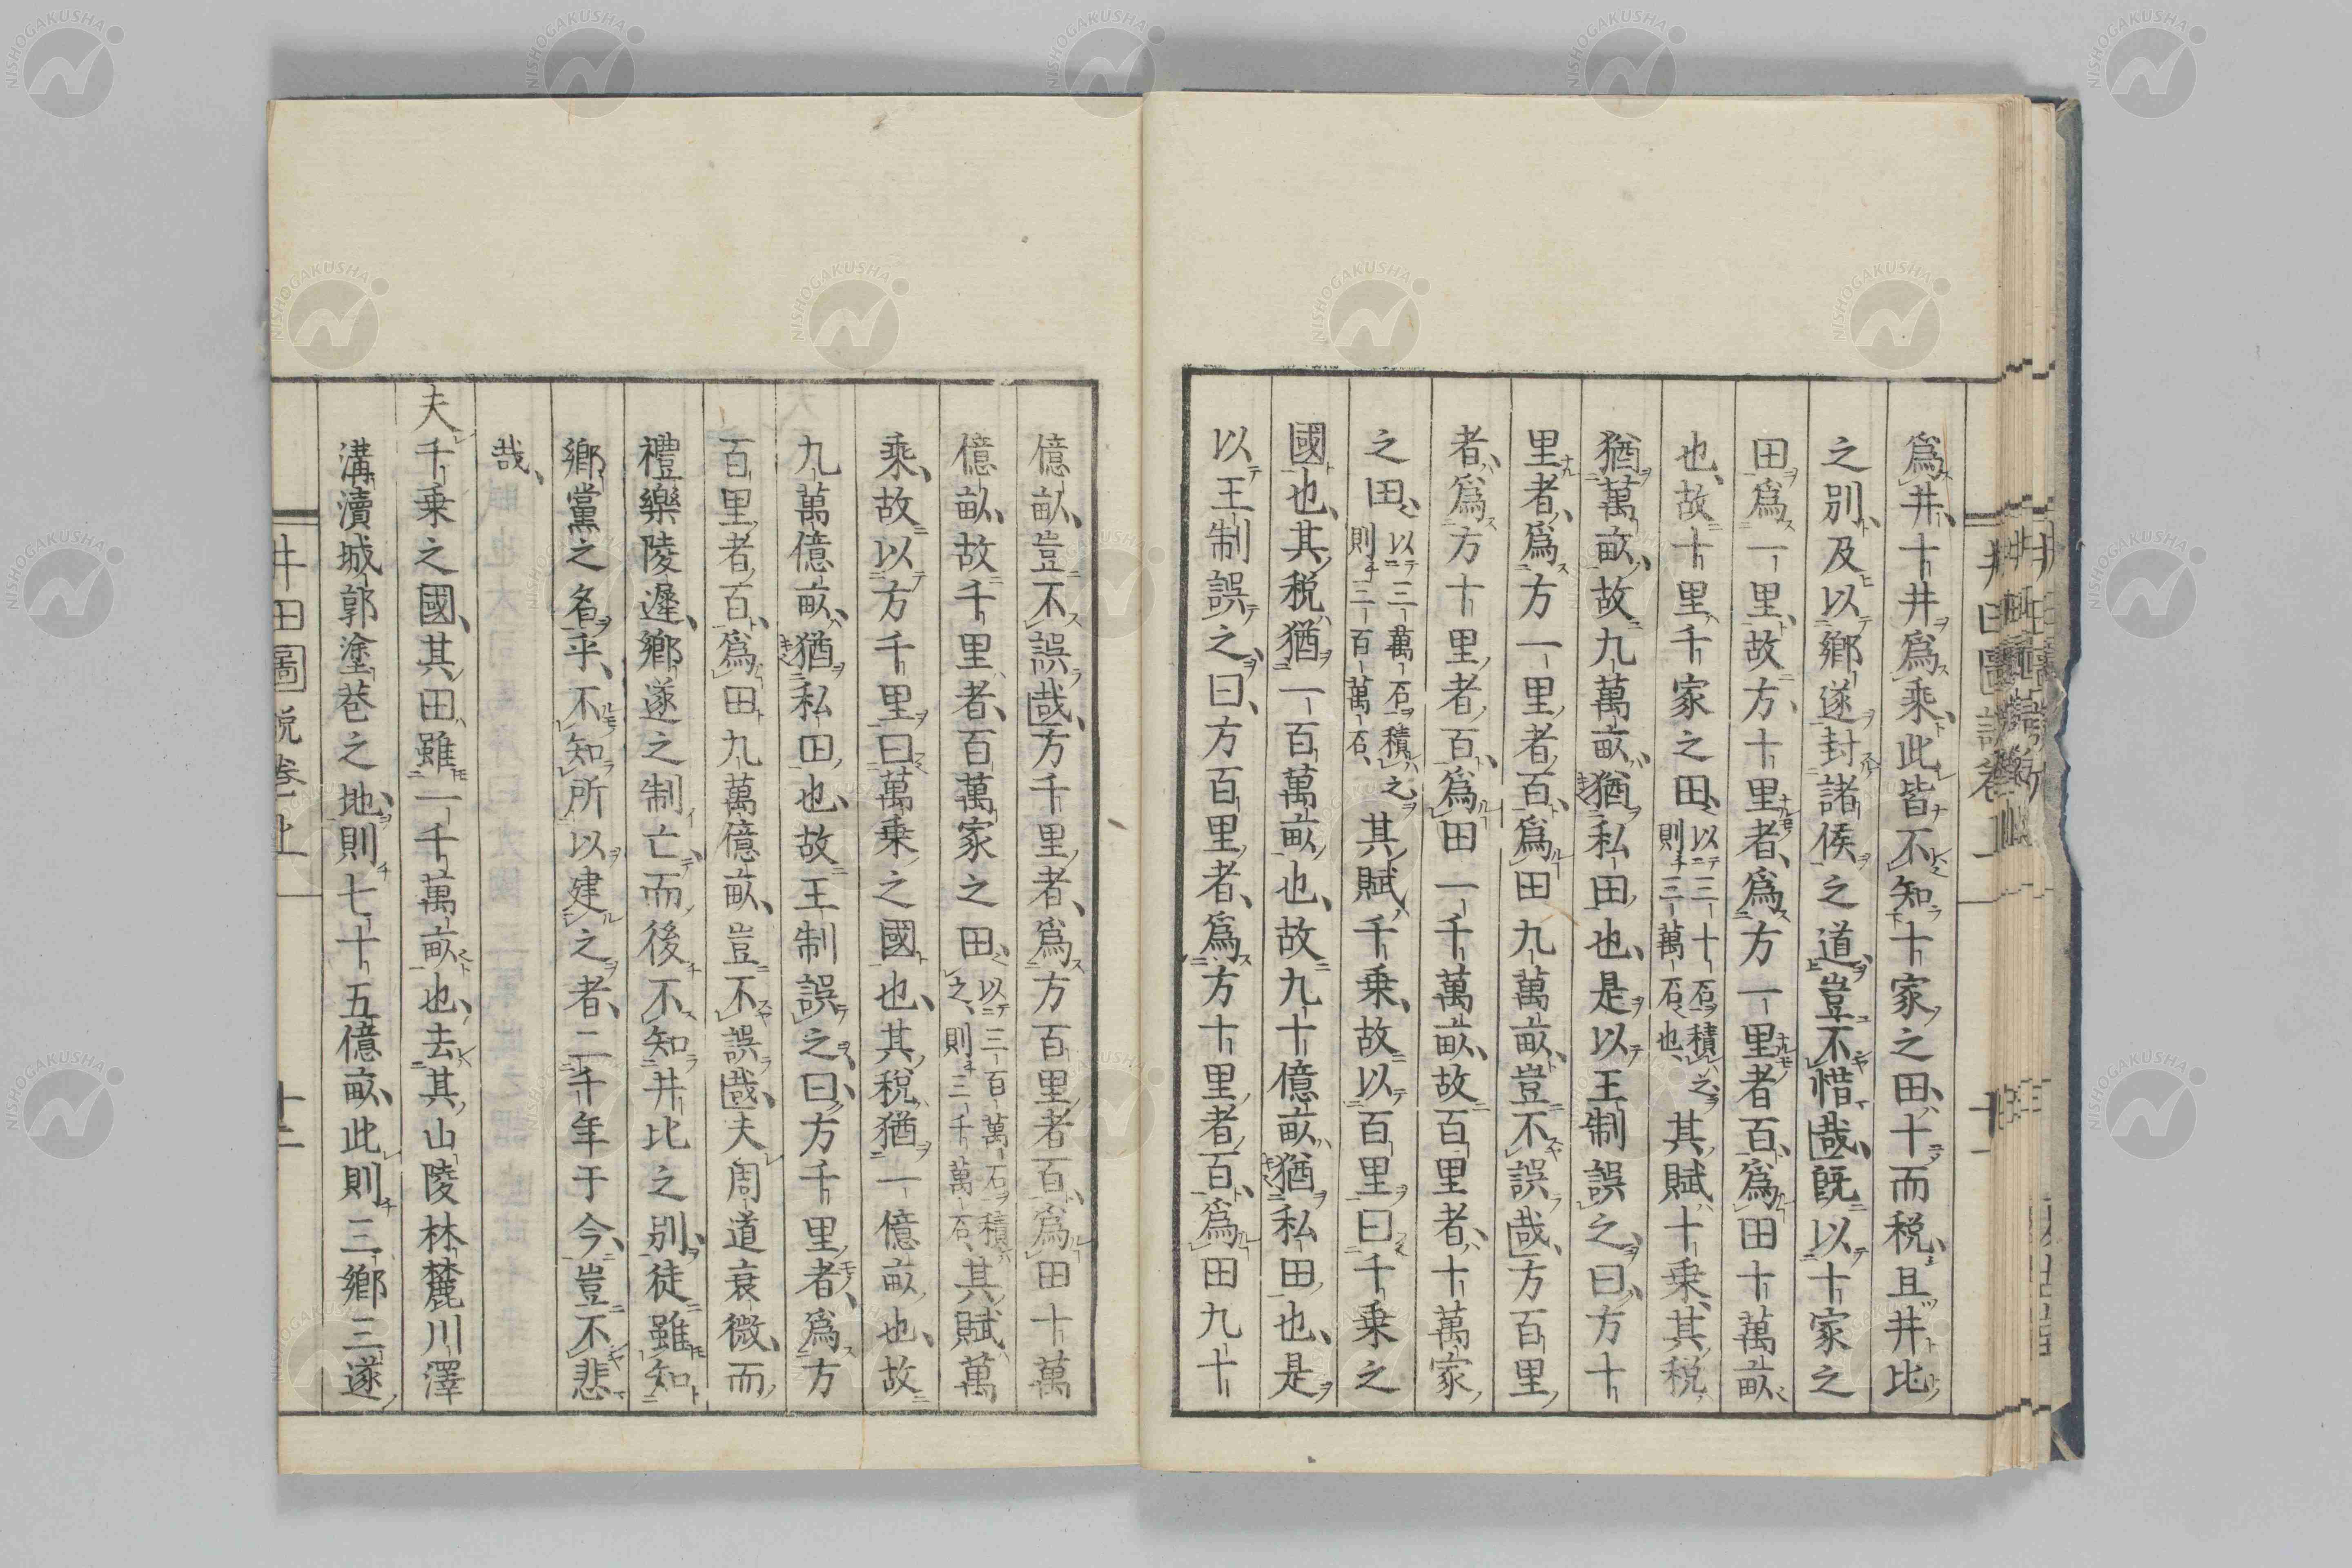 爲井、十井爲乘、此皆不知十家之田、十而税、且井比
之別、及以鄉遂封諸侯之道、豈不惜哉、既以十家之
田爲一里、故方十里者、爲方一里者百、爲田十萬畝
也、故十里千家之田、以三十石積之、則三萬石也、其賦十乘、其税
猶萬畝、故九萬畝、猶私田也、是以王制誤之、曰、方十
里者、爲方一里者百、爲田九萬畝、豈不誤哉、方百里
者、爲方十里者百、爲田一千萬畝、故百里者、十萬家
之田、以三萬石積之、則三百萬石、其賦千乘、故以百里曰千乘之
國也、其税猶一百萬畝也、故九十億畝、猶私田也、是
以王制誤之、曰、方百里者、爲方十里者百、爲田九十
億畝、豈不誤哉、方千里者、爲方百里者百、爲田十萬
億畝、故千里者、百萬家之田、以三百萬石積之、則三千萬石、其賦萬
乘、故以方千里曰萬乘之國也、其税猶一億畝也、故
九萬億畝、猶私田也、故王制誤之、曰、方千里者、爲方
百里者百、爲田九萬億畝、豈不誤哉、夫周道衰微、而
禮樂陵遲、鄉遂之制亡、而後不知井比之別、徒雖知
鄉黨之名乎、不知所以建之者、二千年于今、豈不悲
哉、
夫千乘之國、其田雖一千萬畝也、去其山陵林麓川澤
溝瀆城郭塗巷之地、則七十五億畝、此則三鄉三遂
井田圖説卷上
十二